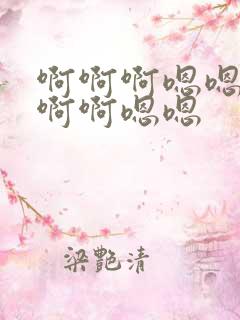 啊啊啊嗯嗯
啊啊嗯嗯
梁艷清